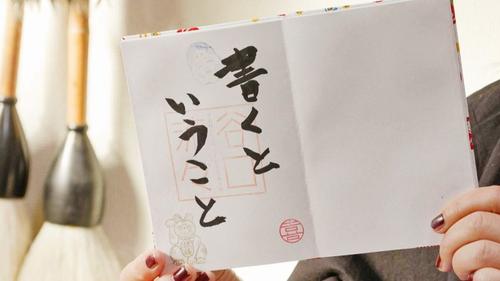 書くと
いうこと